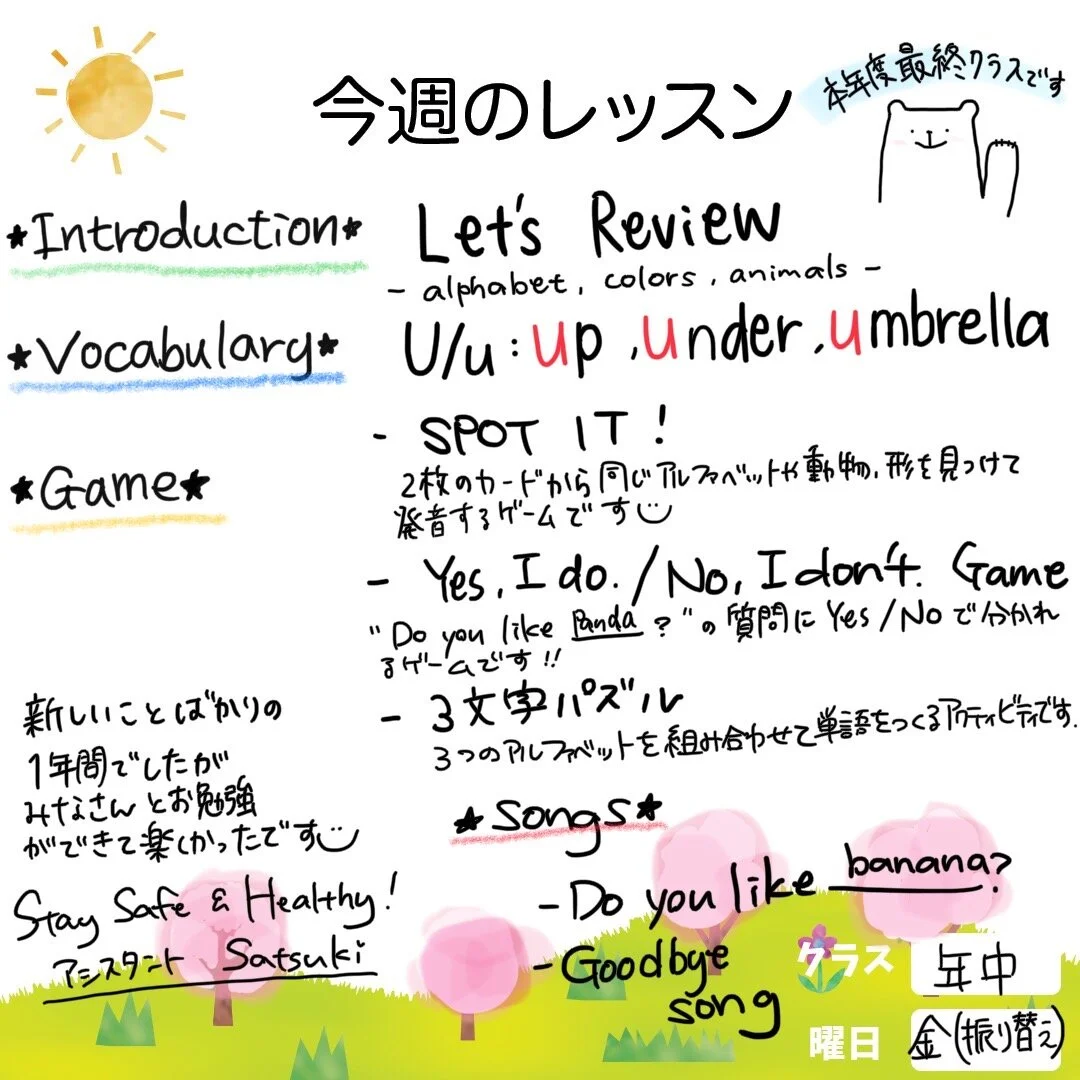 今週のレッスン
本年度最終クラスです
★Introduction★
Let's Review
- alphabet, colors, animals -
★Vocabulary★
U/u : up, under, umbrella
★Game★
- SPOT IT!
2枚のカードから同じアルファベットや動物、形を見つけて
発音するゲームです
- Yes, I do. / No, I don't. Game
"Do you like Panda ? "の質問に Yes/No で分かれ
るゲームです!!
- 3文字パズル
3つのアルファベットを組み合わせて単語をつくるアクティビティです.
新しいことばかりの
1年間でしたが
みなさんとお勉強
ができて楽しかったです
Stay Safe & Healthy!
アシスタント Satsuki
★Songs★
- Do you like banana?
- Goodbye
song
クラス 年中
曜日 金(振り替え)